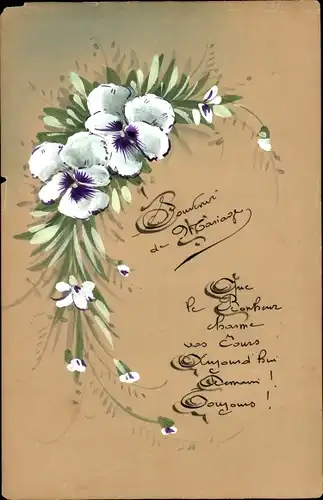 Souvenir
de Mariage
Que
le Bonheur
charme
vos Jours
Aujourd'hui
Demain !
Toujours !